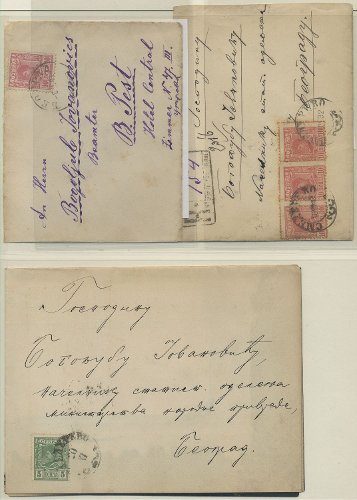 An Herrn
Bogoljub Jovanovics
Beamter
B. Pest
Hôtel Central
Zimmer N 47. III.
Господину
Богољубу Јовановићу
Начелнику стат. одељења
Београду.
154
Господину
Богољубу Јовановићу,
начелнику статист. одељења
министарства народне привреде,
Београд.
5